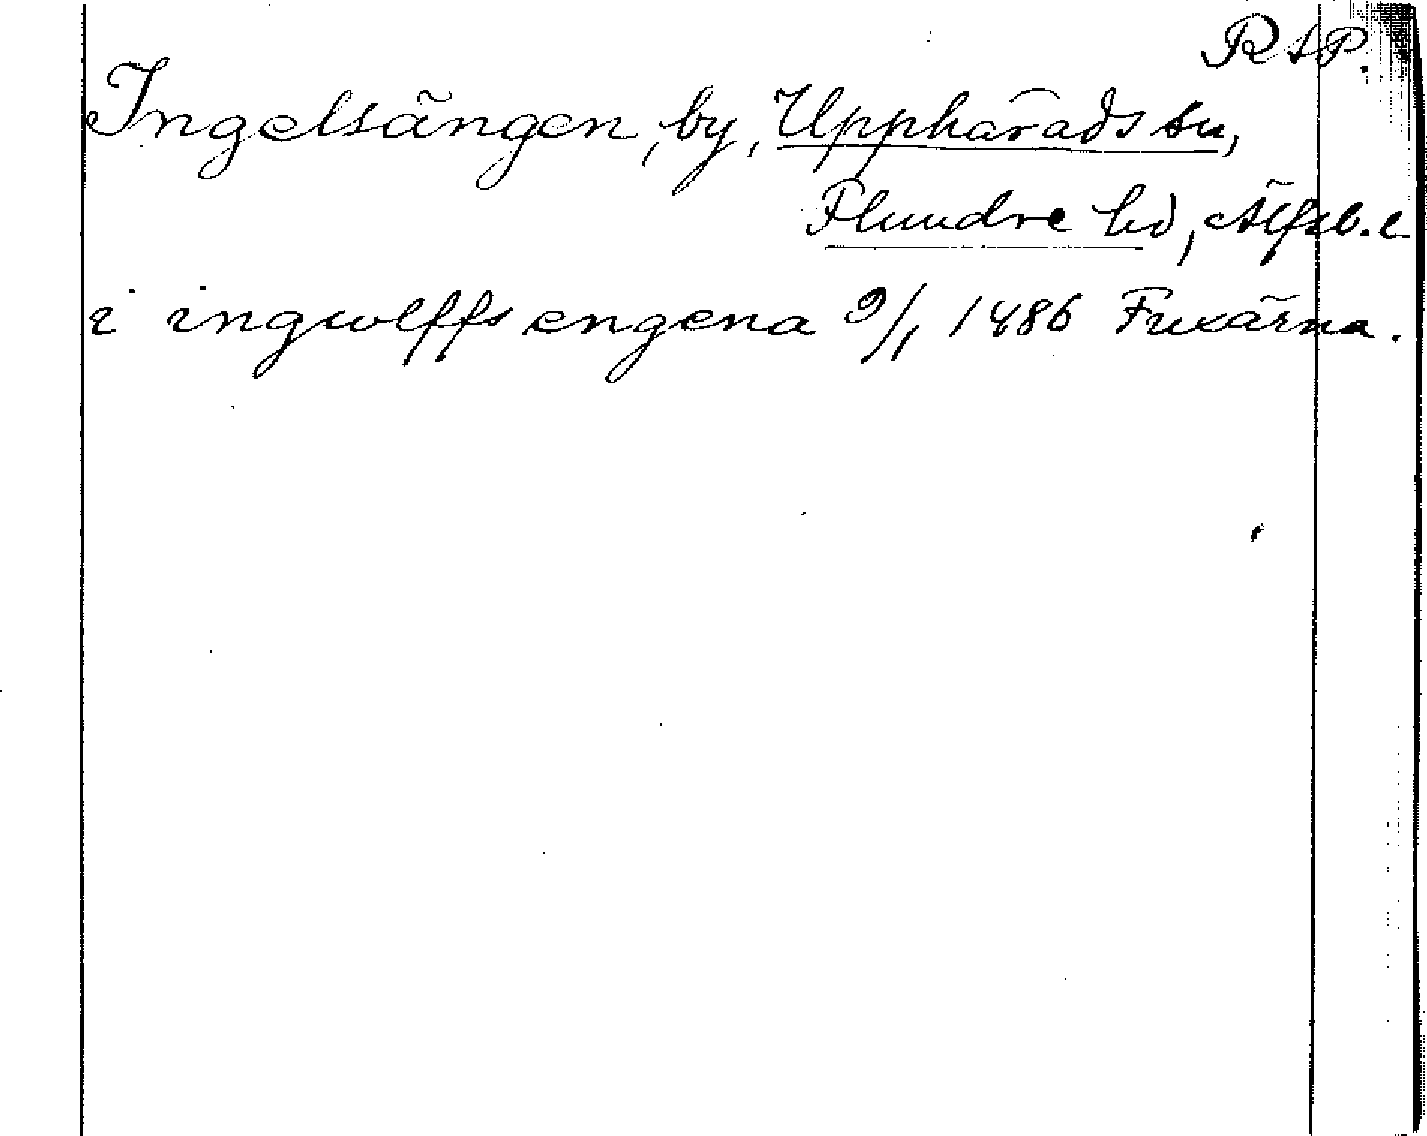 RAP.
Ingelsängen, by, Upphärads sn,
Flundre hd, Älfsb. l
i ingwolffs engena 9/1 1486 Fuxärna.